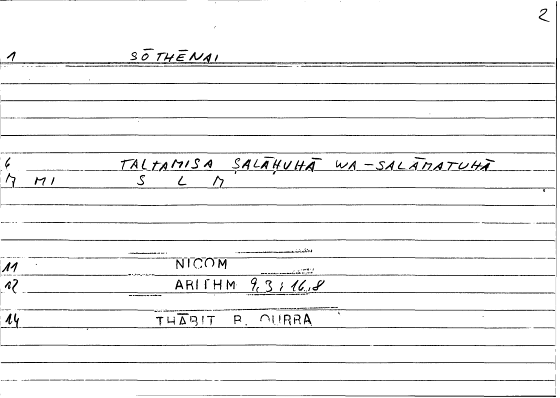 2
1 SŌTHĒNAI
6 TALTAMISA ṢALĀḤUHĀ WA-SALĀMATUHĀ
7 MI S L M
11 NICOM
12 ARITHM 9,3; 16,8
14 THĀBIT B. QURRA